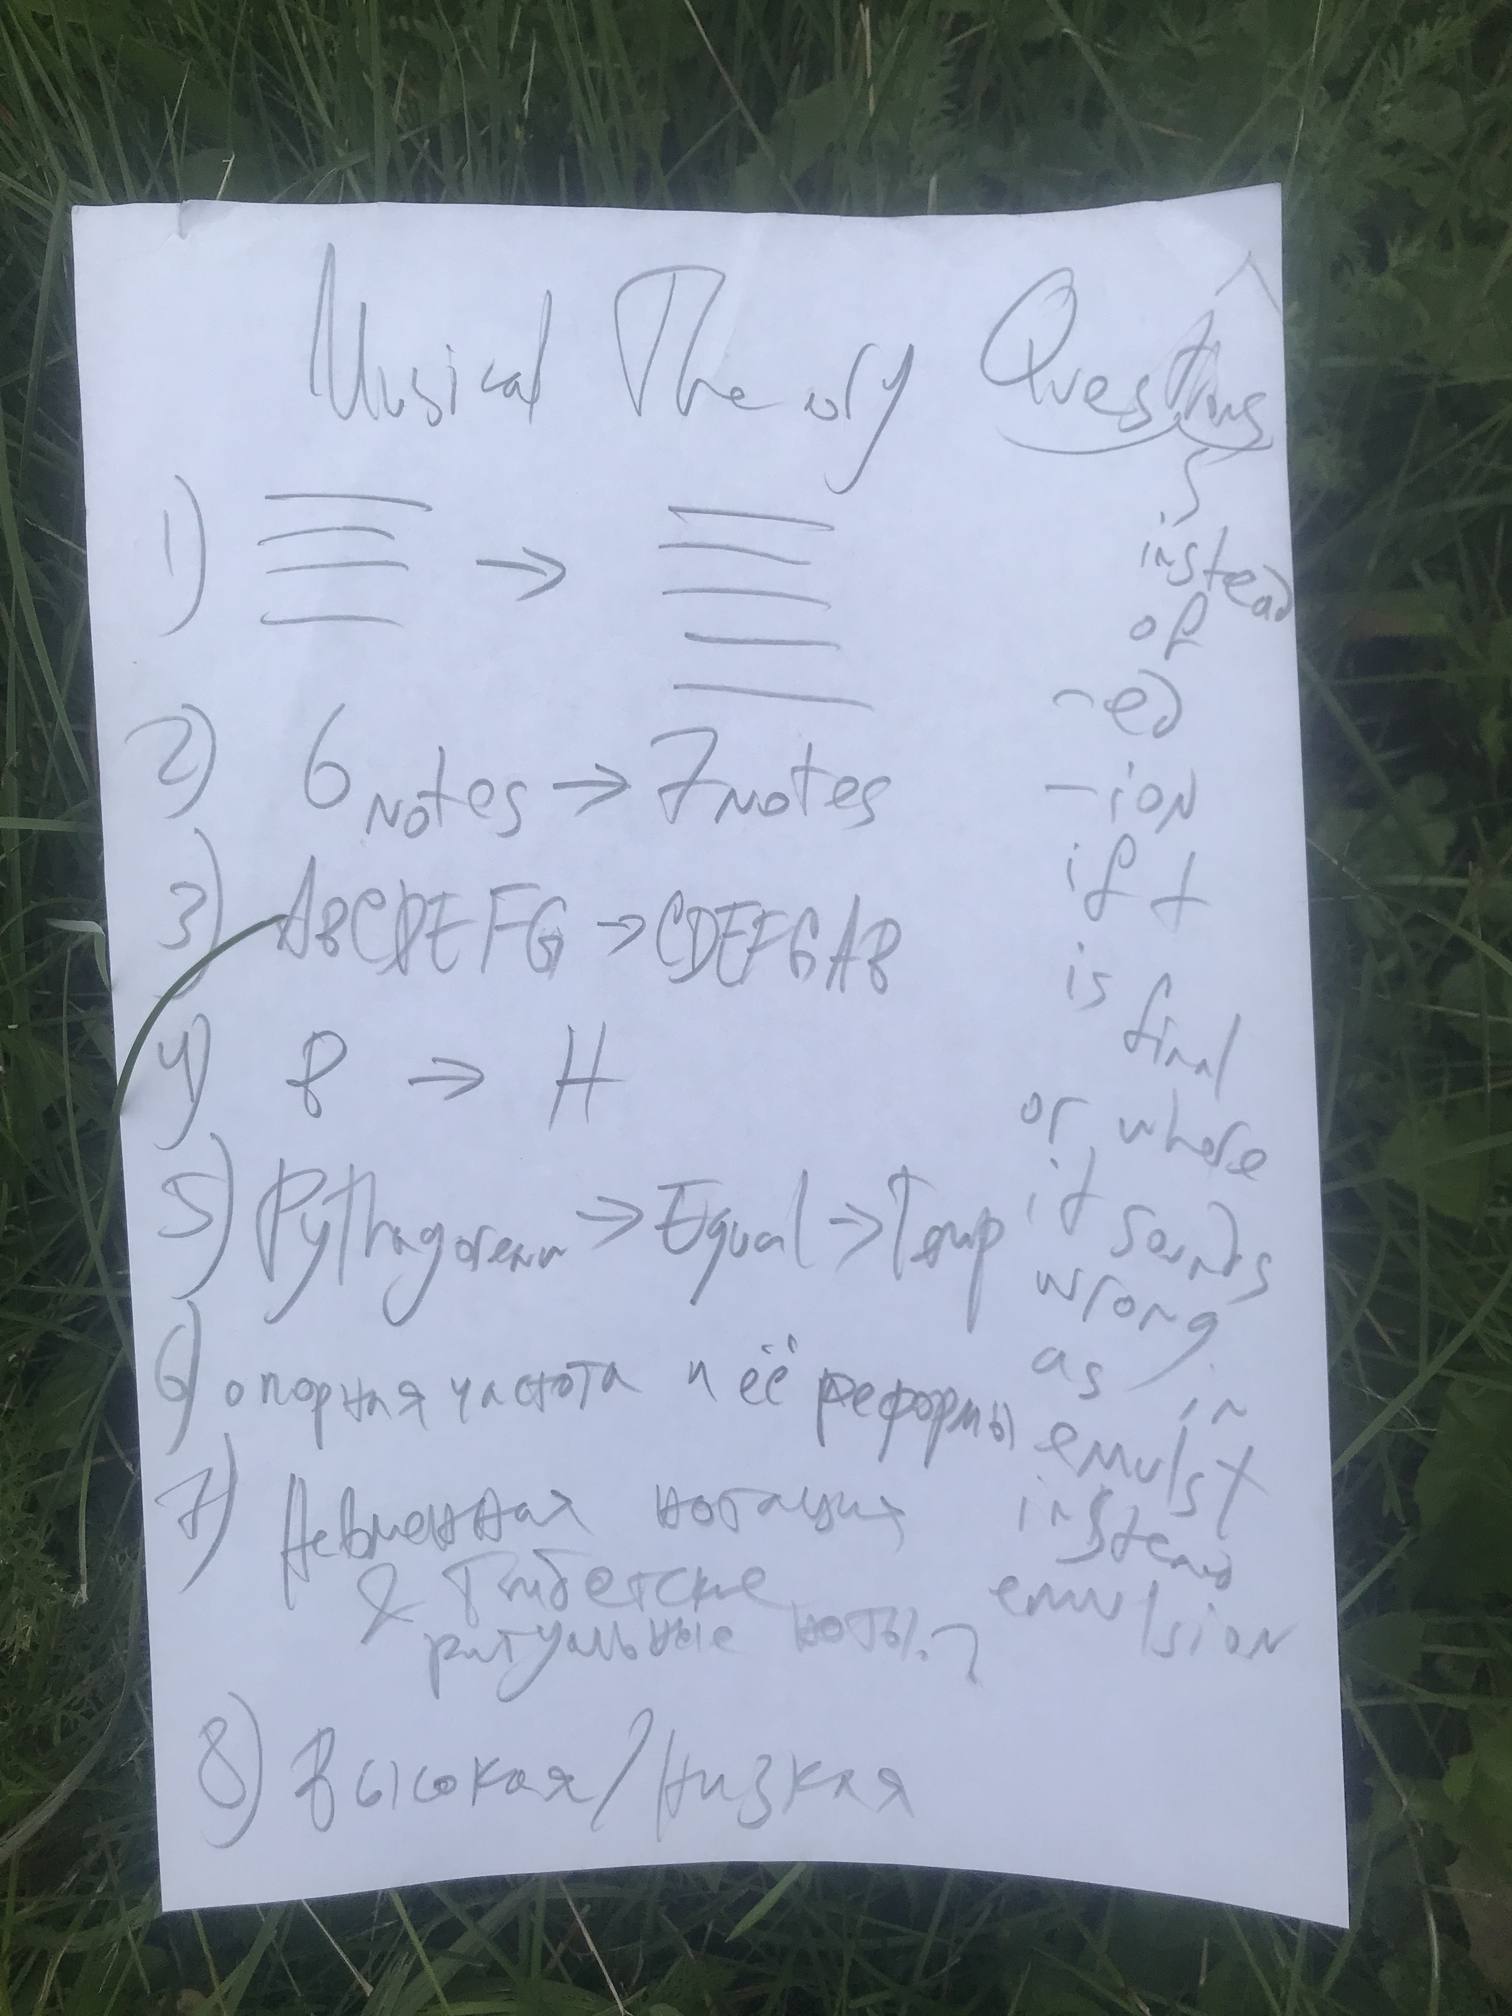 Musical Theory Questions
1) →
2) 6 notes → 7 notes
3) ABCDEFG → CDEFGAB
4) B → H
5) Pythagorean → Equal → Temp
6) опорная частота и её реформы
7) Невменная нотация
& Тибетские
ритуальные ноты?
8) Высокая/Низкая
instead
of
-ed
-ion
if t
is final
or where
it sounds
wrong.
as in
emulst
instead
emulsion